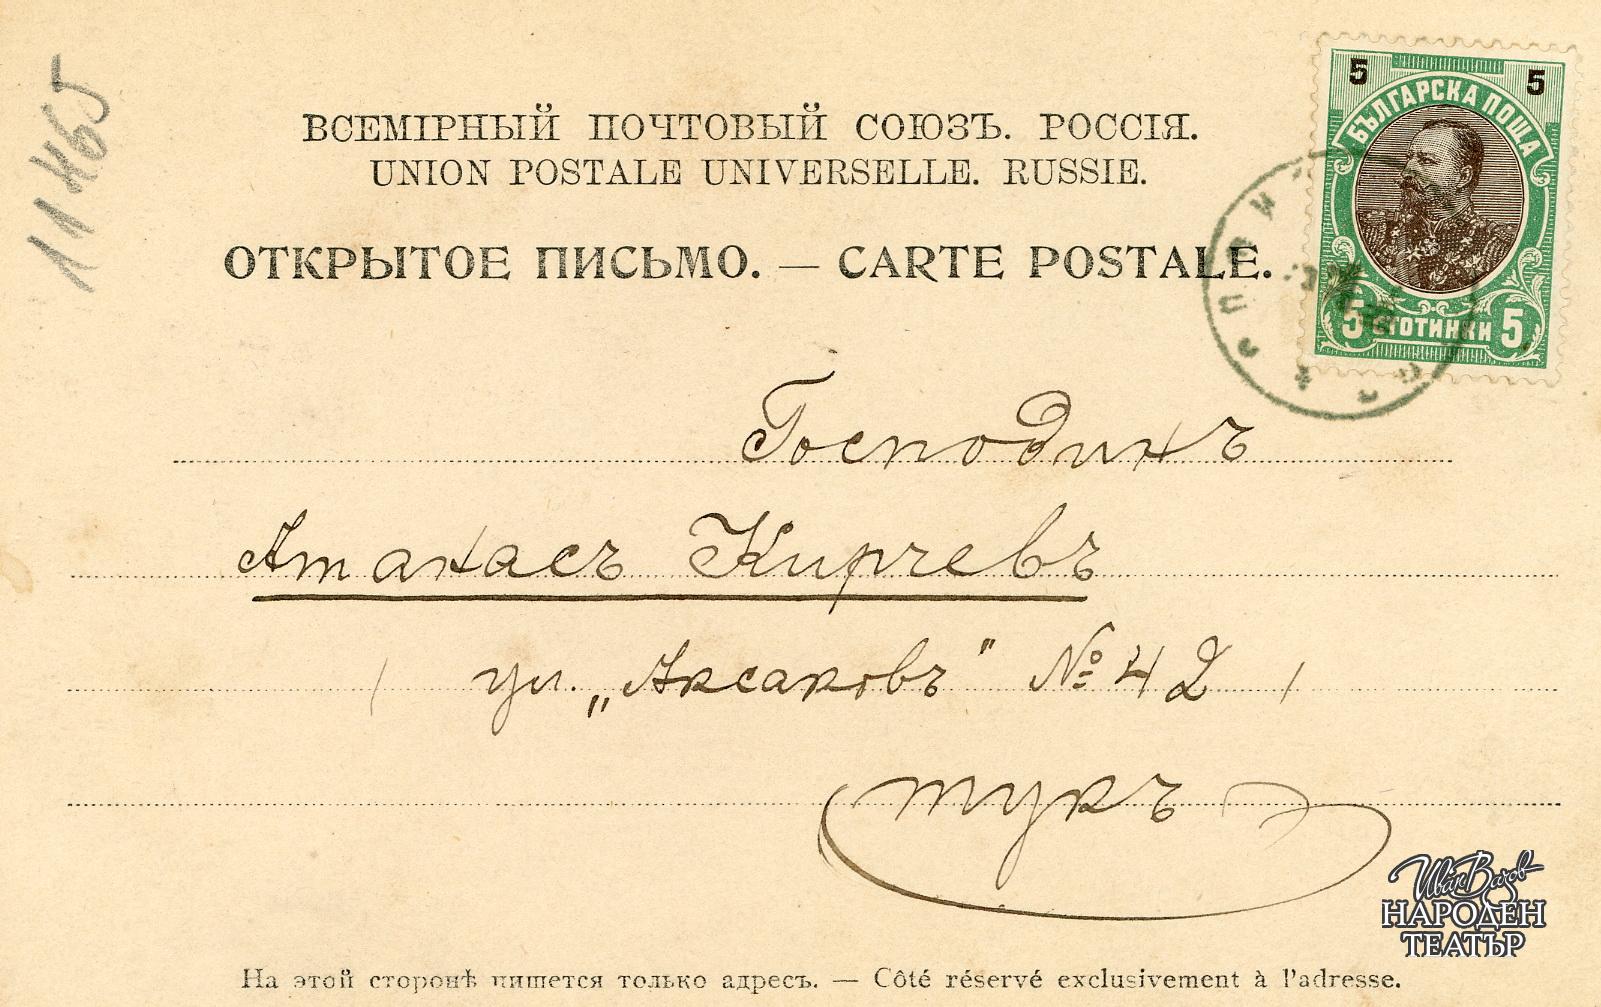 11465
ВСЕМІРНЫЙ ПОЧТОВЫЙ СОЮЗЪ. РОССІЯ.
UNION POSTALE UNIVERSELLE. RUSSIE.
ОТКРЫТОЕ ПИСЬМО. — CARTE POSTALE.
5 5
БЪЛГАРСКА ПОЩА
5 СТОТИНКИ 5
Господинъ
Атанасъ Кирчевъ
ул. „Аксаковъ" № 42
тукъ
Иван Вазов
НАРОДЕН
ТЕАТЪР
На этой сторонѣ пишется только адресъ. — Côté réservé exclusivement à l'adresse.